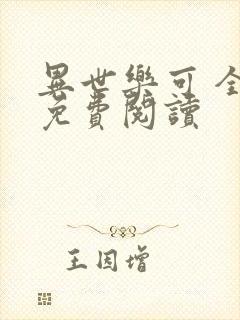 異世樂可 全
免費閱讀
王因增